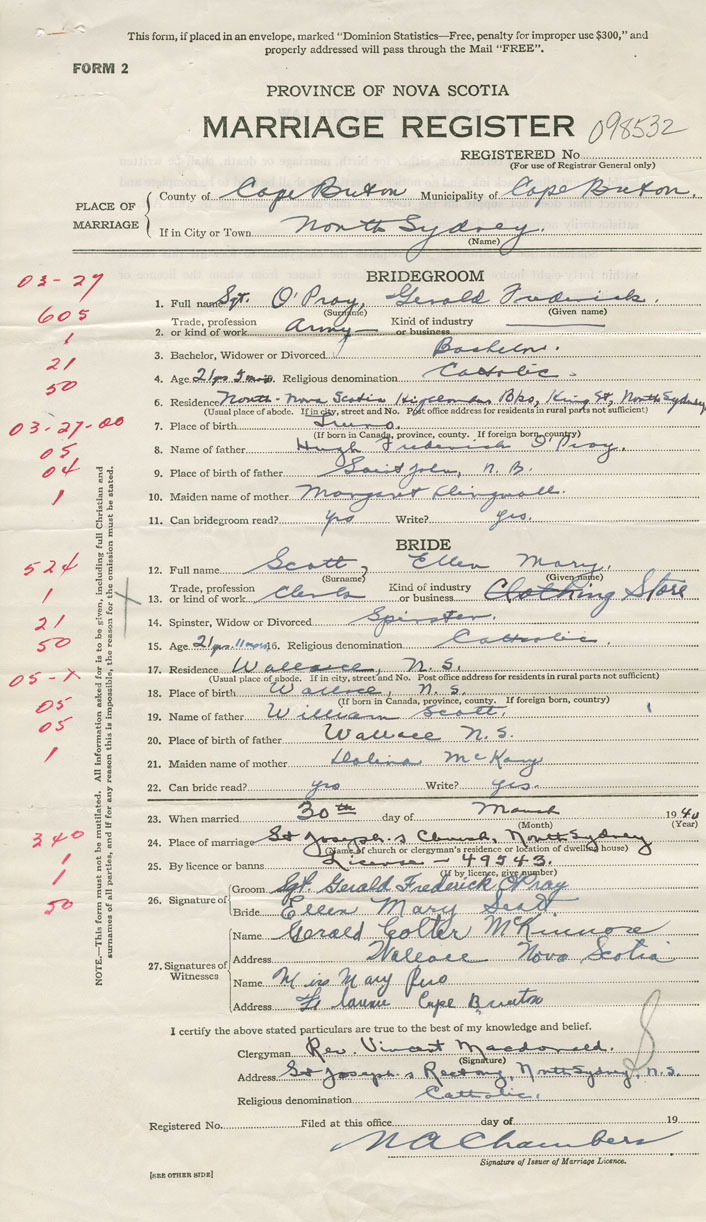 This form, if placed in an envelope, marked "Dominion Statistics—Free, penalty for improper use $300," and
properly addressed will pass through the Mail "FREE".
FORM 2
PROVINCE OF NOVA SCOTIA
MARRIAGE REGISTER 098532
REGISTERED No.
(For use of Registrar General only)
PLACE OF MARRIAGE
County of Cape Breton Municipality of Cape Breton.
If in City or Town North Sydney.
(Name)
03-27
BRIDEGROOM
1. Full name Sgt. O'Pray, Gerald Frederick.
(Surname) (Given name)
605
Trade, profession Kind of industry
2. or kind of work Army or business
1
3. Bachelor, Widower or Divorced Bachelor.
21
4. Age 21 yrs 5 mos. Religious denomination Catholic.
50
6. Residence North Nova Scotia Highlanders Bks, King St, North Sydney
(Usual place of abode. If in city, street and No. Post office address for residents in rural parts not sufficient)
03-27-00
7. Place of birth Truro.
(If born in Canada, province, county. If foreign born, country)
05
8. Name of father Hugh Frederick O'Pray.
04
9. Place of father Saint John, N.B.
1
10. Maiden name of mother Margaret Dingwall.
11. Can bridegroom read? yes Write? yes.
BRIDE
524
12. Full name Scott, Ellen Mary.
(Surname) (Given name)
1
Trade, profession Kind of industry
13. or kind of work Clerk or business Clothing Store
21
14. Spinster, Widow or Divorced Spinster.
50
15. Age 21 yrs. 11 mos 16. Religious denomination Catholic.
05-X
17. Residence Wallace, N.S.
(Usual place of abode. If in city, street and No. Post office address for residents in rural parts not sufficient)
05
18. Place of birth Wallace, N.S.
(If born in Canada, province, county. If foreign born, country)
05
19. Name of father William Scott.
20. Place of birth of father Wallace N.S.
1
21. Maiden name of mother Dolina McKay
22. Can bride read? yes Write? yes.
23. When married 30th day of March 1940
(Month) (Year)
340
24. Place of marriage St Joseph's Church, North Sydney
(Name of church or clergyman's residence or location of dwelling house)
1
25. By licence or banns License - 49543.
(If by licence, give number)
1
26. Signature of
Groom Sgt Gerald Frederick O'Pray
50
Bride Ellen Mary Scott
27. Signatures of Witnesses
Name Gerald Colter McKinnon
Address Wallace Nova Scotia
Name Miss Mary
Address Cape Breton
I certify the above stated particulars are true to the best of my knowledge and belief.
Clergyman Rev. Vincent Macdonald.
(Signature)
Address St Joseph's Rectory, North Sydney, N.S.
Religious denomination Catholic.
Registered No. Filed at this office day of 19
N A Chambers
Signature of Issuer of Marriage Licence.
[SEE OTHER SIDE]
NOTE.—This form must not be mutilated. All information asked for is to be given, including full Christian and
surnames of all parties, and if for any reason this is impossible, the reason for the omission must be stated.